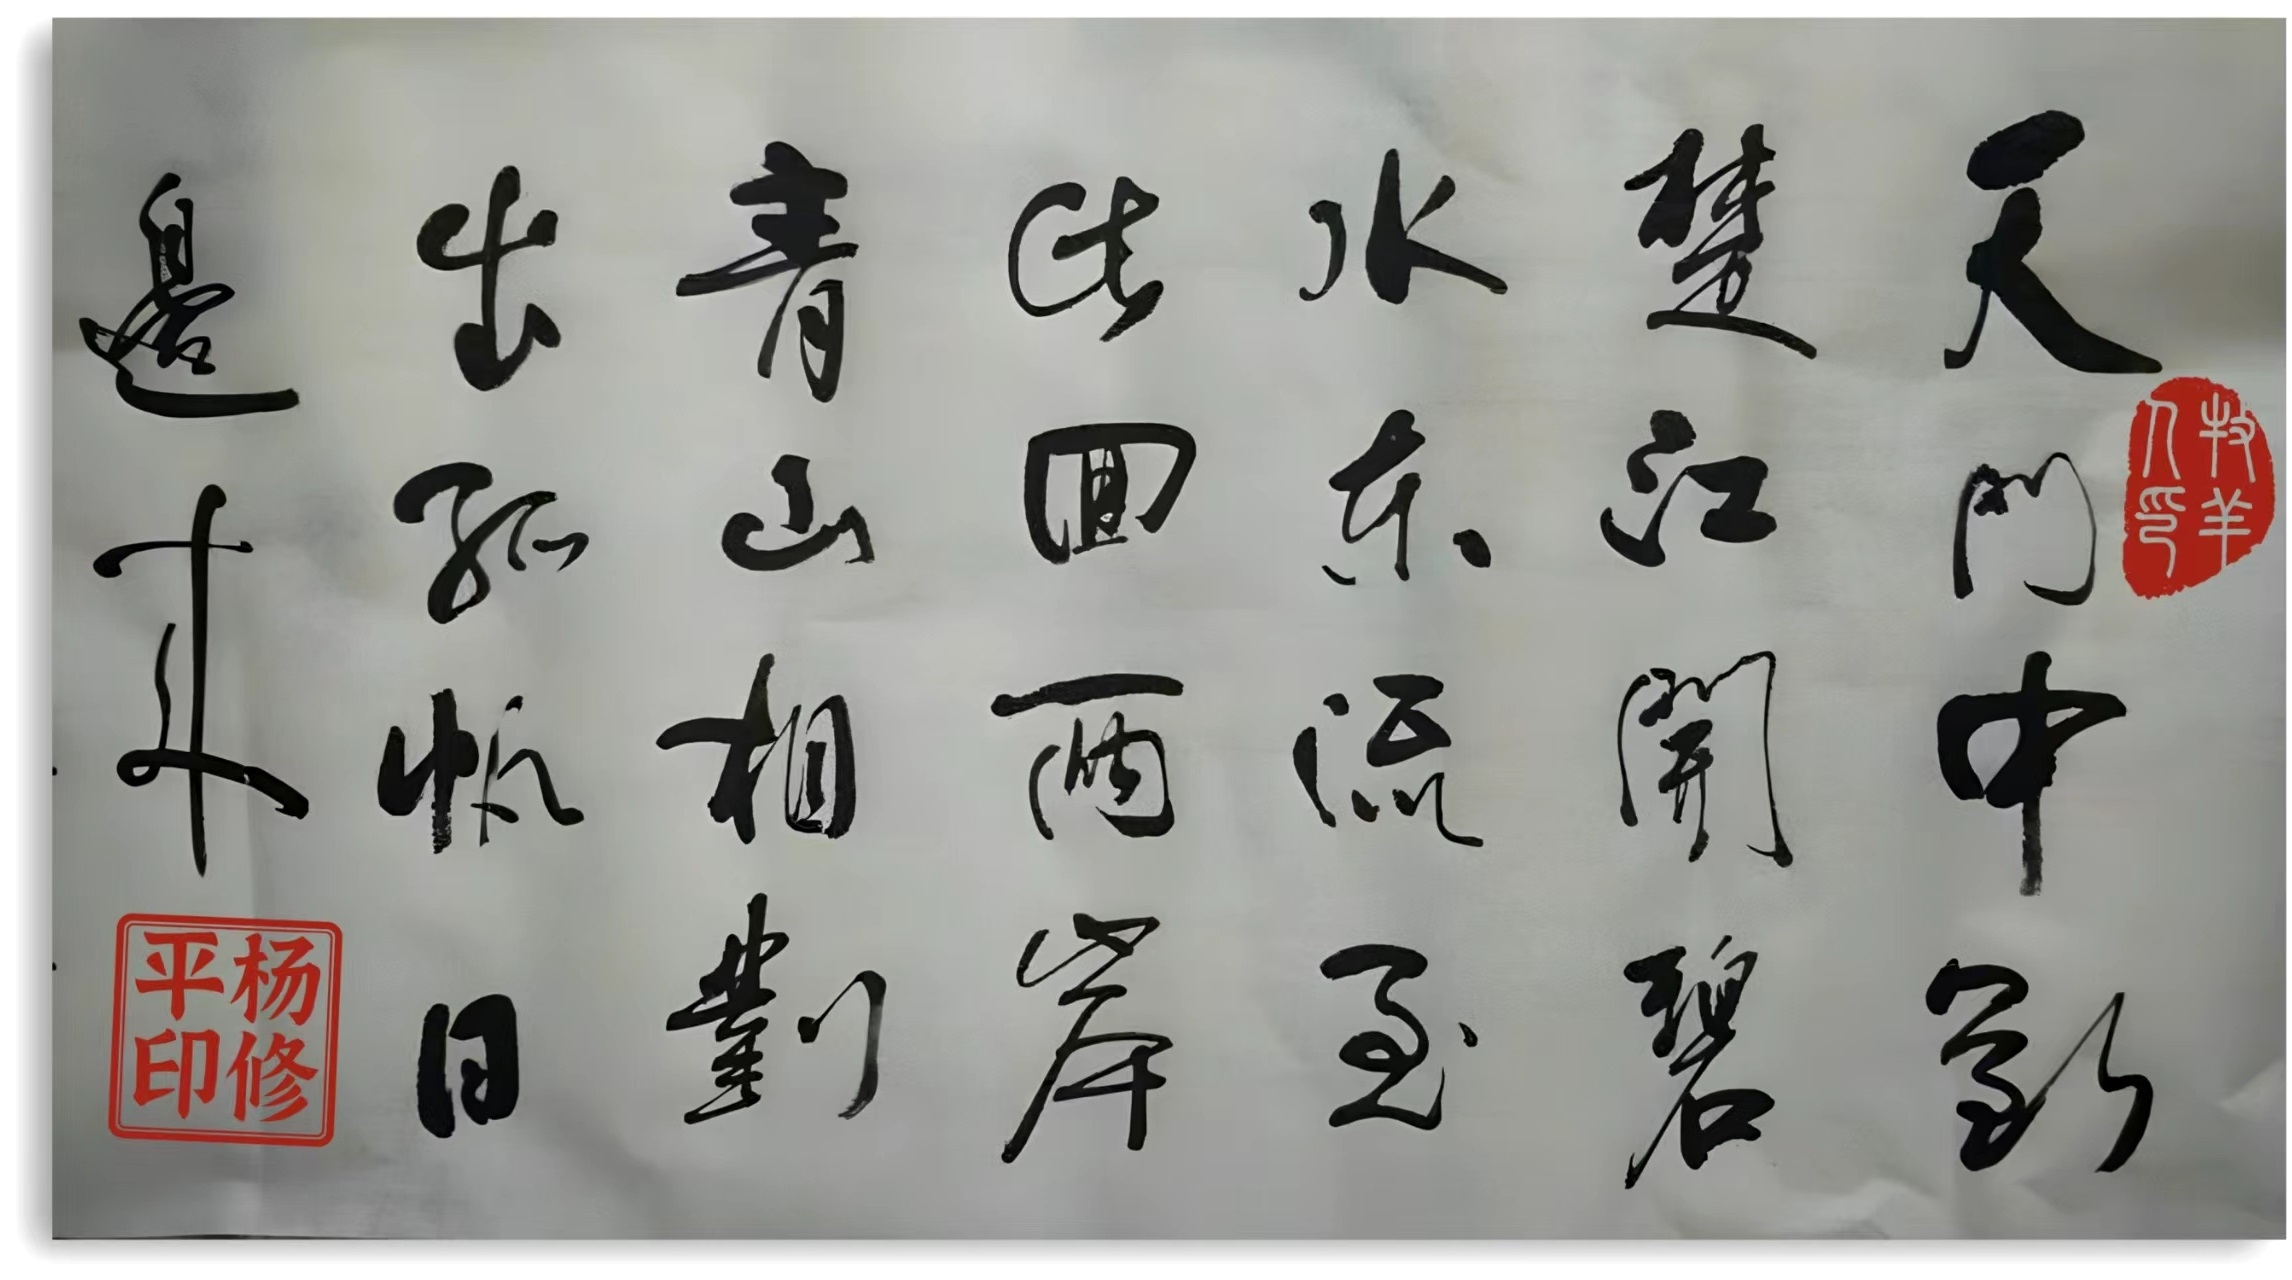 天門中斷
楚江開碧
水东流至
此回兩岸
青山相對
出孤帆日
邊来
牧羊人印
杨修平印